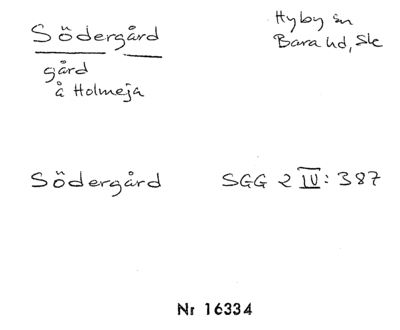 Södergård
Hyby sn
Bara hd, Sk
gård
å Holmeja
Södergård
SGG 2 IV: 387
Nr 16334